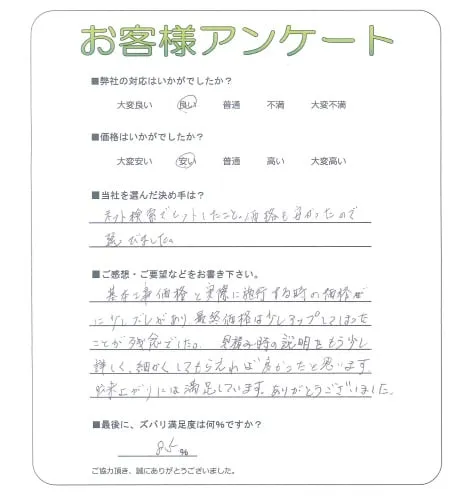 お客様アンケート
■弊社の対応はいかがでしたか?
大変良い 良い 普通 不満 大変不満
■価格はいかがでしたか?
大変安い 安い 普通 高い 大変高い
■当社を選んだ決め手は?
ネット検索でヒットしたこと。価格も安かったので
選びました。
■ご感想・ご要望などをお書き下さい。
基本工事価格と実際に施行する時の価格が
に少しズレがあり、最終価格は少しアップしてしまった
ことが残念でした。見積り時の説明をもう少し
詳しく、細かくしてもらえれば良かったと思います
出来上がりには満足しています。ありがとうございました。
■最後に、ズバリ満足度は何%ですか?
85 %
ご協力頂き、誠にありがとうございました。